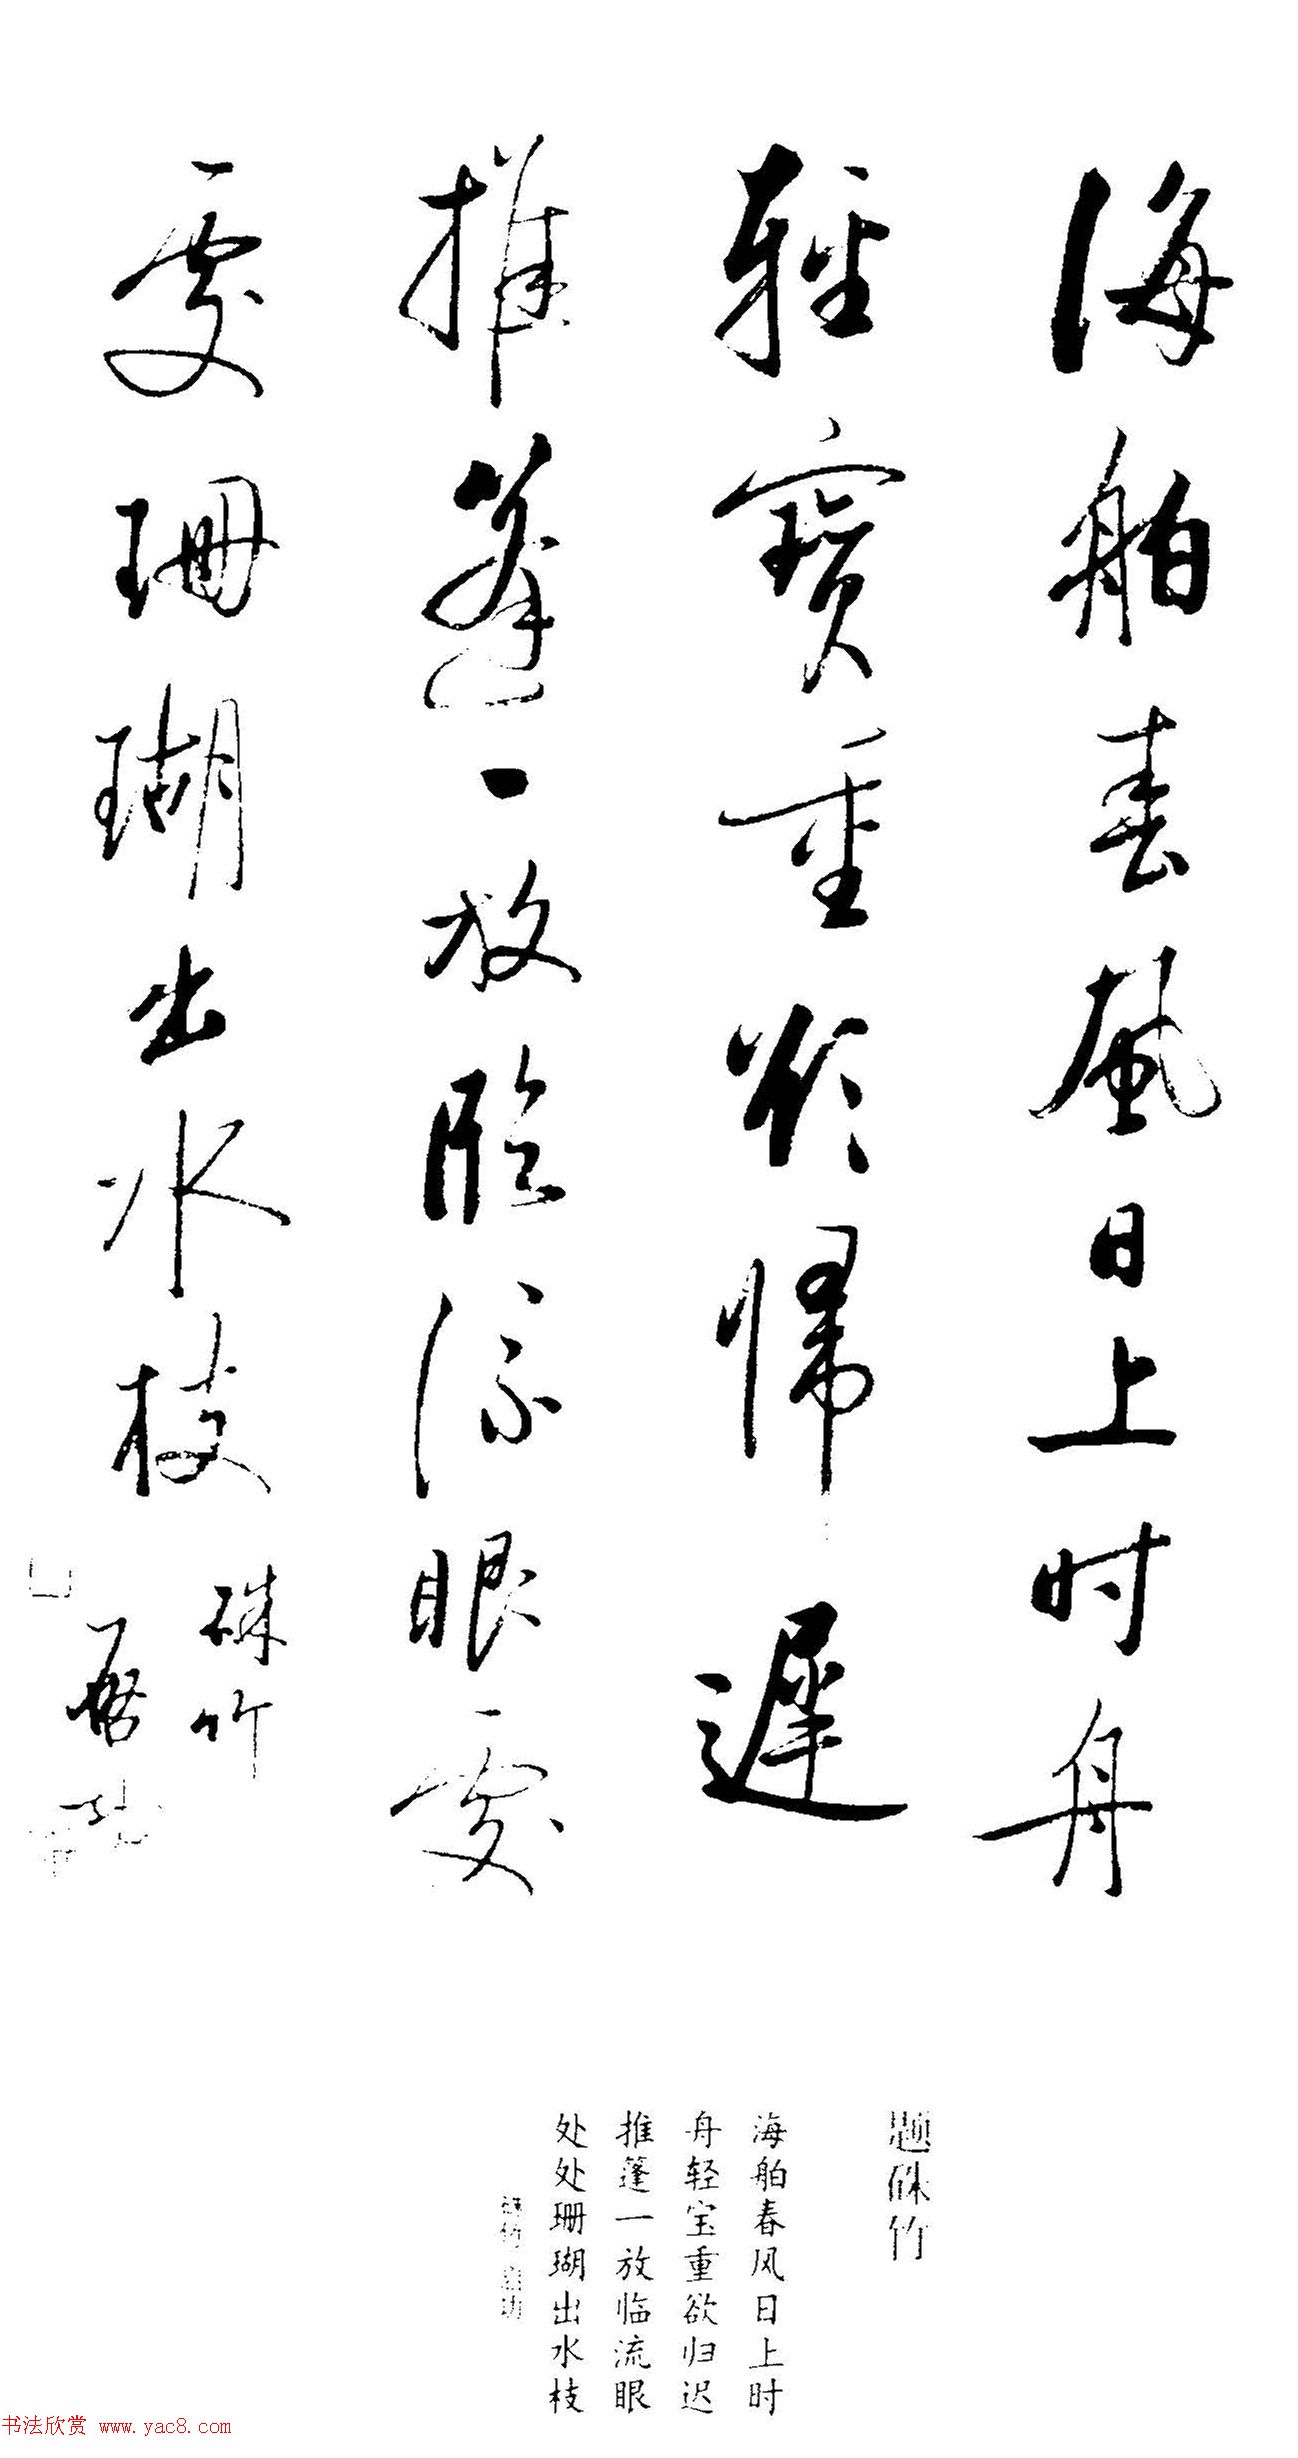 海舶春風日上时舟
輕寶重欲歸遲
推篷一放臨流眼處
處珊瑚出水枝
硃竹
啓功
题硃竹
海舶春风日上时
舟轻宝重欲归迟
推篷一放临流眼
处处珊瑚出水枝
硃竹 启功
书法欣赏 www.yac8.com